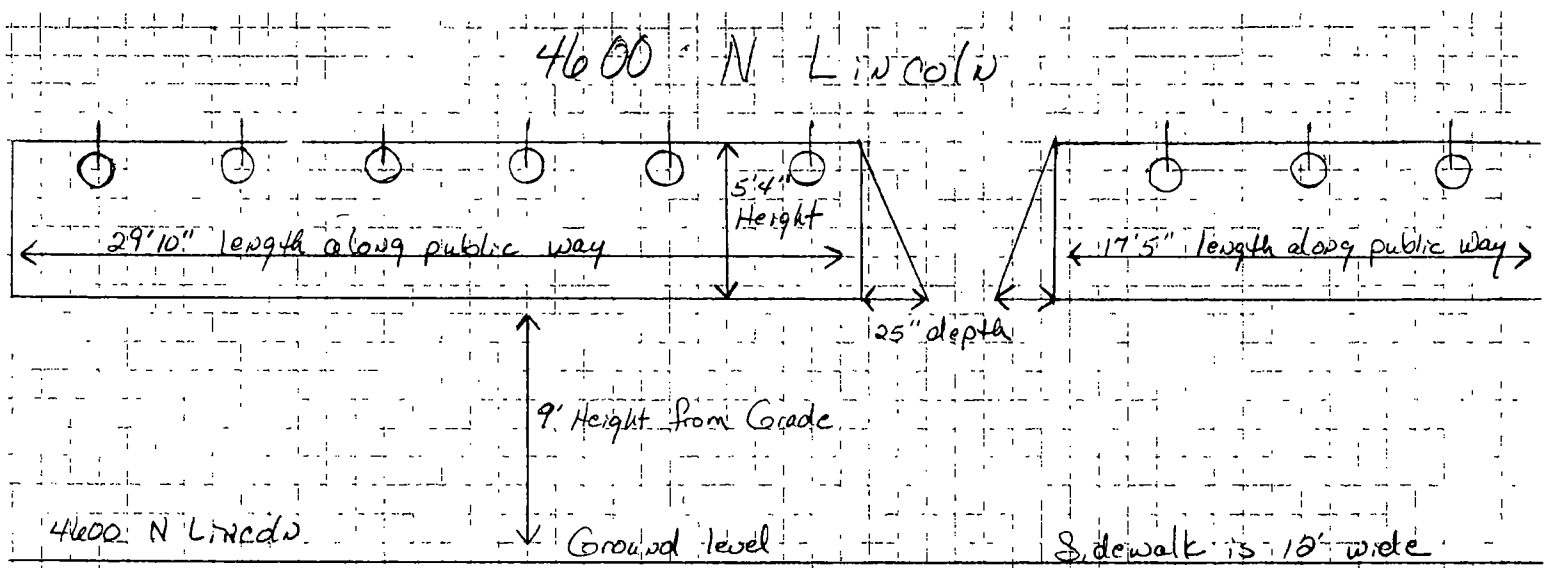 4600 N Lincoln
5'4"
Height
29'10" length along public way
17'5" length along public way
25" depth
9' Height from Grade
4600 N Lincoln
Ground level
Sidewalk is 12' wide